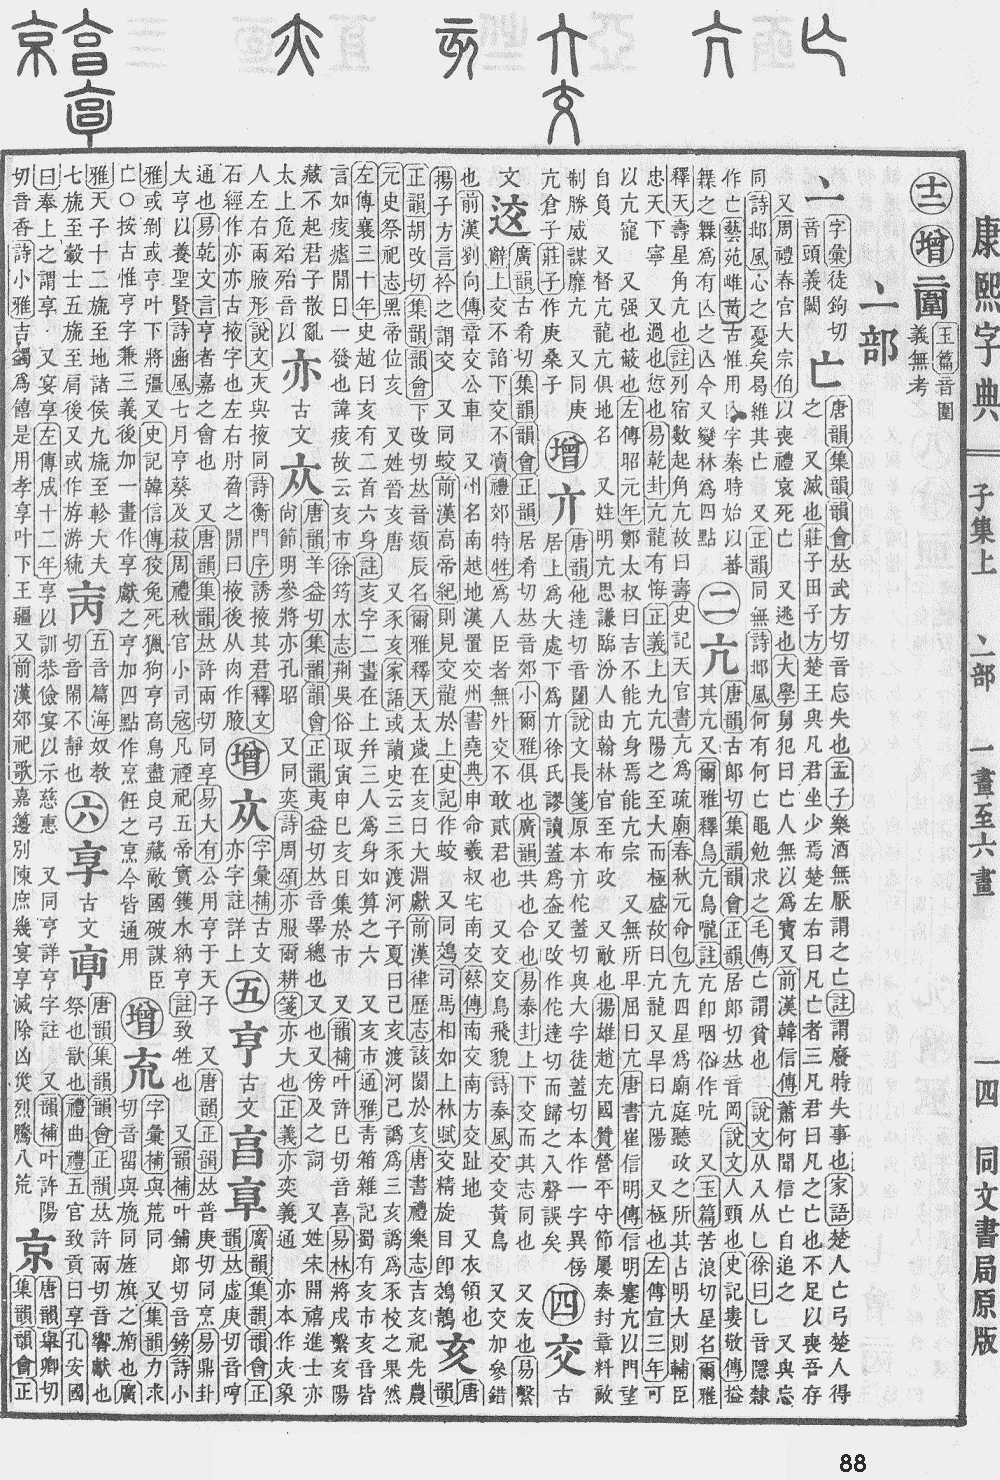 康熙字典
子集上
亠部
一畫至六畫
一四
同文書局原版
增
玉篇音圍
義無考
亠部
亠
字彙徒鉤切
音頭義闕
一
亡
唐韻集韻韻會𠀤武方切音忘失也孟子樂酒無厭謂之亡註謂廢時失事也家語楚人亡弓楚人得
之 又滅也莊子田子方楚王與凡君坐少焉楚左右曰凡亡者三凡君曰凡之亡也不足以喪吾存
又周禮春官大宗伯以喪禮哀死亡 又逃也大學舅犯曰亡人無以爲寶又前漢韓信傳蕭何聞信亡自追之 又與忘
同詩邶風心之憂矣曷維其亡 又正韻同無詩邶風何有何亡黽勉求之毛傳亡謂貧也 說文从入从乚徐曰乚音隱隸
作亡藝苑雌黃古惟用
字秦時始以蕃
橆之橆爲有亾之亾今又變林爲四點
二
亢
唐韻古郎切集韻韻會正韻居郎切𠀤音岡說文人頸也史記婁敬傳搤
其亢又爾雅釋鳥亢鳥嚨註亢卽咽俗作吭 又玉篇苦浪切星名爾雅
釋天壽星角亢也註列宿數起角亢故曰壽史記天官書亢爲疏廟春秋元命包亢四星爲廟庭聽政之所其占明大則輔臣
忠天下寧 又過也愆也易乾卦亢龍有悔正義上九亢陽之至大而極盛故曰亢龍又旱曰亢陽 又極也左傳宣三年可
以亢寵 又强也蔽也左傳昭元年鄭太叔曰吉不能亢身焉能亢宗 又無所𤰞屈曰亢唐書崔信明傳信明蹇亢以門望
自負 又督亢龍亢俱地名 又姓明亢思謙臨汾人由翰林官至布政 又敵也揚雄趙充國贊營平守節屢奏封章料敵
制勝威謀靡亢 又同庚
亢倉子莊子作庚桑子
增
亣
唐韻他達切音闥說文長箋原本亣佗蓋切與大字徒蓋切本作一字異傍
居上爲大處下爲亣徐氏謬讀蓋爲盍又改作佗達切而歸之入聲誤矣
四
交
古
文
𢒈
廣韻古肴切集韻韻會正韻居肴切𠀤音郊小爾雅俱也廣韻共也合也易泰卦上下交而其志同也 又友也易繫
辭上交不諂下交不瀆禮郊特牲爲人臣者無外交不敢貳君也 又交交鳥飛貌詩秦風交交黃鳥 又交加參錯
也前漢劉向傳章交公車 又州名南越地漢置交州書堯典申命羲叔宅南交蔡傳南交南方交趾地 又衣領也
揚子方言衿之謂交 又同蛟前漢高帝紀則見交龍於上史記作蛟 又同鵁司馬相如上林賦交精旋目卽鵁鶄
亥
唐韻
正韻胡改切集韻韻會下改切𠀤音頦辰名爾雅釋天太歲在亥曰大淵獻前漢律歷志該閡於亥唐書禮樂志吉亥祀先農
元史祭祀志黑帝位亥 又姓晉亥唐 又豕亥家語或讀史云三豕渡河子夏曰己亥渡河己譌爲三亥譌爲豕校之果然
左傳襄三十年史趙曰亥有二首六身註亥字二畫在上幷三人爲身如算之六 又亥市通雅青箱雜記蜀有亥市亥音皆
言如痎瘧閒日一發也諱痎故云亥市徐筠水志荆吳俗取寅申巳亥日集於市 又韻補叶許巳切音喜易林將戌繫亥陽
藏不起君子散亂
太上危殆殆音以
亦
古文
𠅃
唐韻羊益切集韻韻會正韻夷益切𠀤音睪總也又也又傍及之詞 又姓宋開禧進士亦
尙節明參將亦孔昭 又同奕詩周頌亦服爾耕箋亦大也正義亦奕義通 亦本作夾象
人左右兩腋形說文夾與掖同詩衡門序誘掖其君釋文
石經作亦亦古掖字也左右肘脅之閒曰掖後从肉作腋
增
𠅃
字彙補古文
亦字註詳上
五
亨
古文
𠅠
𠅘
廣韻集韻韻會正
韻𠀤虛庚切音哼
通也易乾文言亨者嘉之會也 又唐韻集韻𠀤許兩切同享易大有公用亨于天子 又唐韻正韻𠀤普庚切同烹易鼎卦
大亨以養聖賢詩豳風七月亨葵及菽周禮秋官小司寇凡禋祀五帝實鑊水納亨註致牲也 又韻補叶鋪郎切音鎊詩小
雅或剝或亨叶下將彊又史記韓信傳狡兔死獵狗亨高鳥盡良弓藏敵國破謀臣
亡○按古惟亨字兼三義後加一畫作享獻之亨加四點作烹飪之烹今皆通用
增
㐬
字彙補與荒同 又集韻力求
切音留與旒同旌旗之旒也廣
雅天子十二旒至地諸侯九旒至軫大夫
七旒至轂士五旒至肩後又或作斿游統
𠅤
五音篇海奴敎
切音鬧不靜也
六
享
古文
𠅖
唐韻集韻韻會正韻𠀤許兩切音響獻也
祭也歆也禮曲禮五官致貢曰享孔安國
曰奉上之謂享 又宴享左傳成十二年享以訓恭儉宴以示慈惠 又同亨詳亨字註 又韻補叶許陽
切音香詩小雅吉蠲爲饎是用孝享叶下王疆又前漢郊祀歌嘉籩列陳庶幾宴享滅除凶災烈騰八荒
京
唐韻舉卿切
集韻韻會正
88